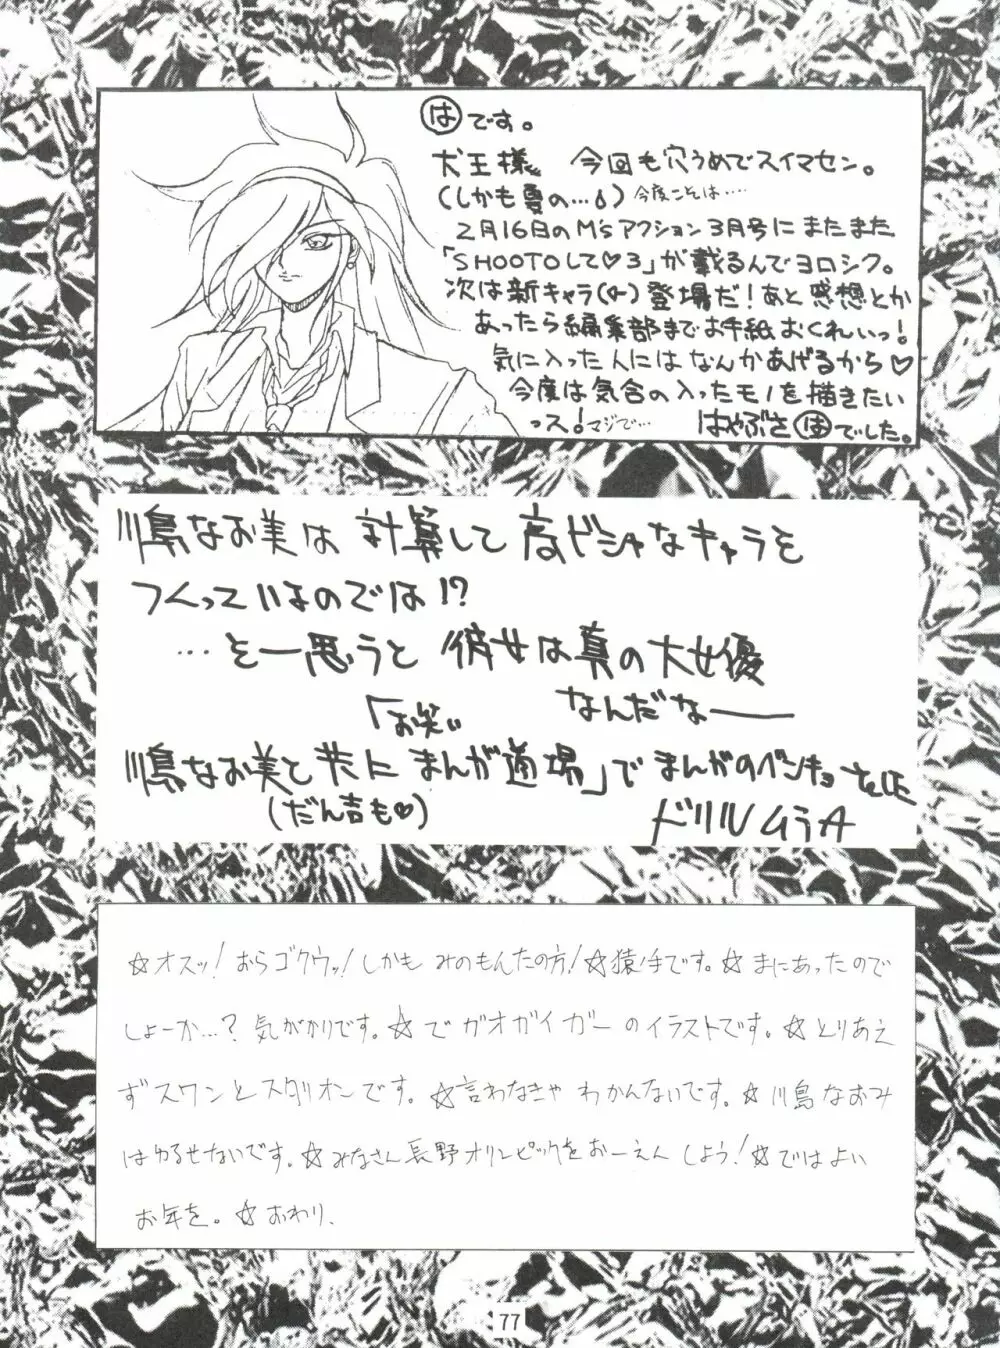 はです。
犬王様 今回も穴うめでスイマセン。
(しかも夏の…) 今度こそは‥‥
2月16日のM'sアクション3月号にまたまた
「SHOOTOして♡3」が載るんでヨロシク。
次は新キャラ(♀)登場だ!あと感想とか
あったら編集部までお手紙おくれいっ!
気に入った人にはなんかあげるから♡
今度は気合の入ったモノを描きたい
っス!マジで… はやぶさはでした。
川島なお美は計算して高ビシャなキャラを
つくっているのでは!?
…と思うと彼女は真の大女優
「お笑い なんだなー
川島なお美と共にまんが道場」でまんがのベンキョーをした
(だん吉も♡) ドリルムラA
☆オスッ!おらゴクウッ!しかもみのもんたの方!☆猿手です。☆まにあったので
しょーか…?気がかりです。☆でガオガイガーのイラストです。☆とりあえ
ずスワンとスタリオンです。☆言わなきゃわかんないです。☆川島なおみ
はゆるせないです。☆みなさん長野オリンピックをおーえんしよう!☆ではよい
お年を。☆おわり、
77